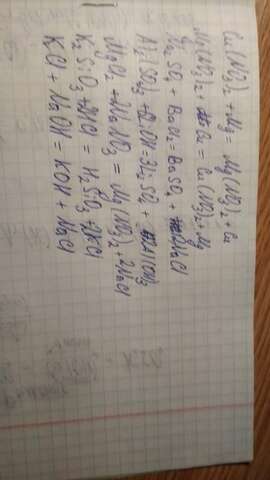 Cu(NO3)2 + Mg = Mg(NO3)2 + Cu
Mg(NO3)2 + Cu = Cu(NO3)2 + Mg
Na2SO4 + BaCl2 = BaSO4 + 2NaCl
Al2(SO4)3 + LiOH = 3Li2SO4 + Al(OH)3
MgCl2 + 2NaNO3 = Mg(NO3)2 + 2NaCl
K2SiO3 + 2HCl = H2SiO3 2KCl
KCl + NaOH = KOH + NaCl